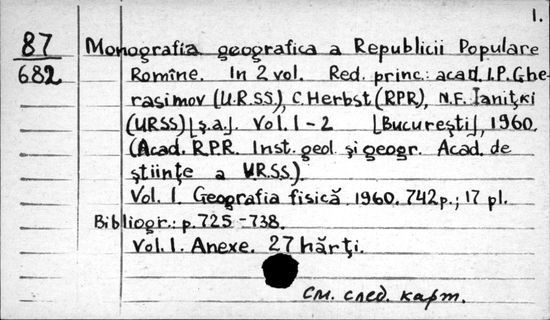 1.
87 Monografia geografica a Republicii Populare
682 Romîne. In 2 vol. Red. princ.: acad. I.P. Ghe-
rasimov (U.R.S.S.), C. Herbst (RPR), N.F. Ianiţki
(URSS) [ş.a.]. Vol. 1-2 [Bucureşti], 1960.
(Acad. R.P.R. Inst. geol. şi geogr. Acad. de
ştiinţe a U.R.S.S.)
Vol. 1. Geografia fisică. 1960. 742p.; 17 pl.
Bibliogr.: p. 725-738.
Vol. 1. Anexe. 27 hărţi.
См. след. карт.